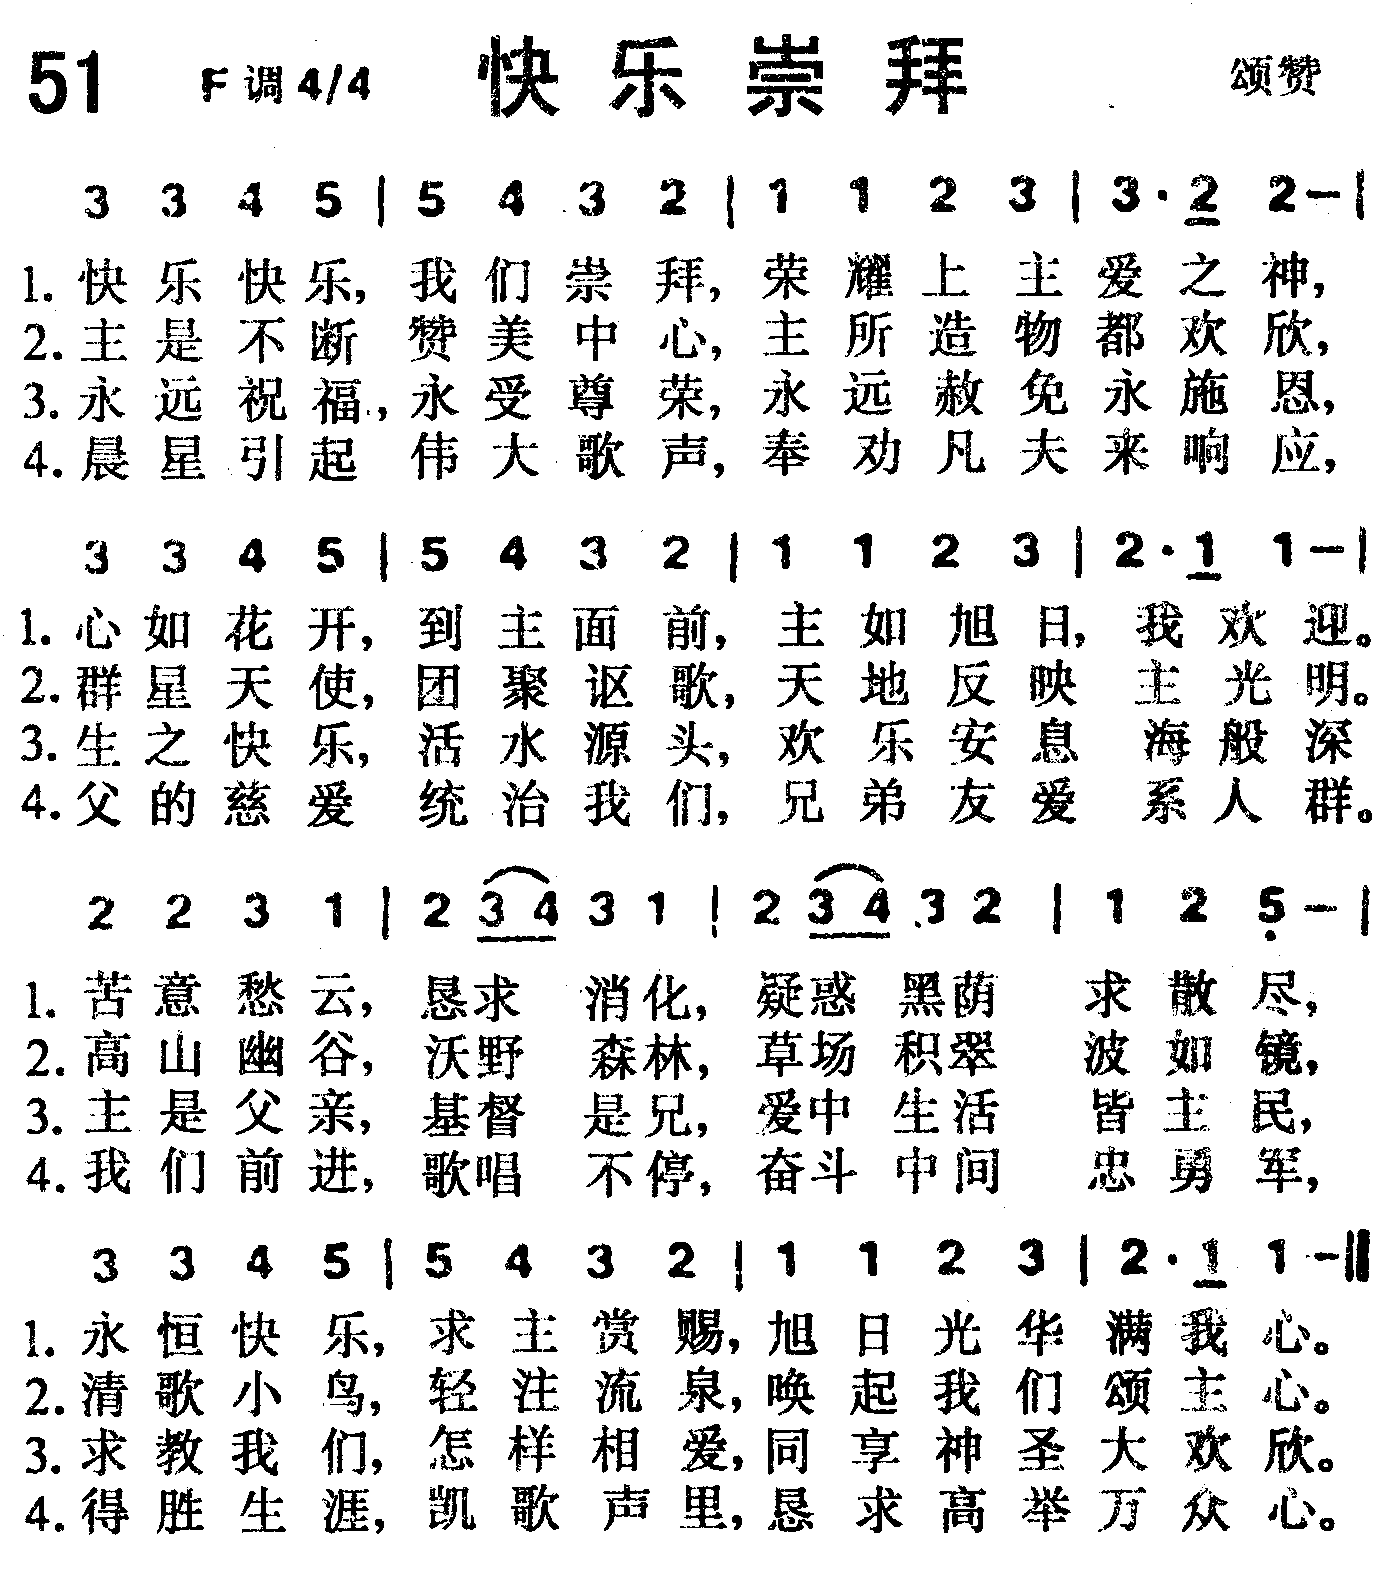 51 F调4/4 快乐崇拜 颂赞
3 3 4 5 | 5 4 3 2 | 1 1 2 3 | 3·2 2— |
1.快乐快乐,我们崇拜,荣耀上主爱之神,
2.主是不断赞美中心,主所造物都欢欣,
3.永远祝福,永受尊荣,永远赦免永施恩,
4.晨星引起伟大歌声,奉劝凡夫来响应,
3 3 4 5 | 5 4 3 2 | 1 1 2 3 | 2·1 1— |
1.心如花开,到主面前,主如旭日,我欢迎。
2.群星天使,团聚讴歌,天地反映主光明。
3.生之快乐,活水源头,欢乐安息海般深
4.父的慈爱统治我们,兄弟友爱系人群。
2 2 3 1 | 2 3 4 3 1 | 2 3 4 3 2 | 1 2 5 — |
1.苦意愁云,恳求消化,疑惑黑荫求散尽,
2.高山幽谷,沃野森林,草场积翠波如镜,
3.主是父亲,基督是兄,爱中生活皆主民,
4.我们前进,歌唱不停,奋斗中间忠勇军,
3 3 4 5 | 5 4 3 2 | 1 1 2 3 | 2·1 1—‖
1.永恒快乐,求主赏赐,旭日光华满我心。
2.清歌小鸟,轻注流泉,唤起我们颂主心。
3.求教我们,怎样相爱,同享神圣大欢欣。
4.得胜生涯,凯歌声里,恳求高举万众心。